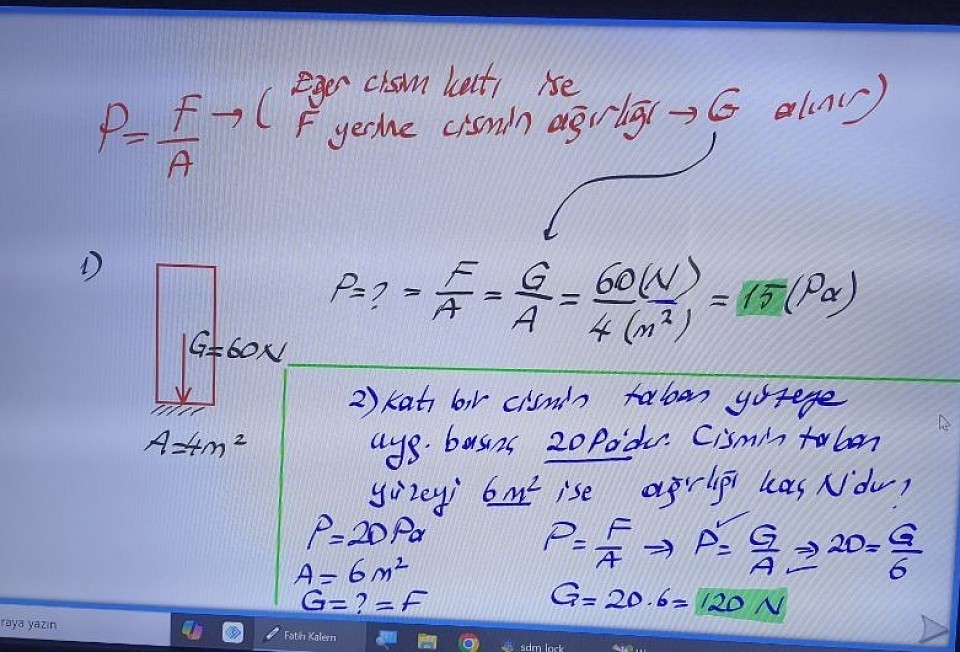 P = F/A → ( Eğer cisim katı ise
F yerine cismin ağırlığı → G alınır)
1)
P=? = F/A = G/A = 60(N)/4(m²) = 15 (Pa)
G=60N
A=4m²
2) Katı bir cismin taban yüzeye
uyg. basınç 20 Pa'dır. Cismin taban
yüzeyi 6m² ise ağırlığı kaç N'dur?
P=20Pa
A=6m²
G=?=F
P=F/A ⇒ P=G/A ⇒ 20=G/6
G=20.6=120 N
raya yazın
Fatih Kalem
sdm lock